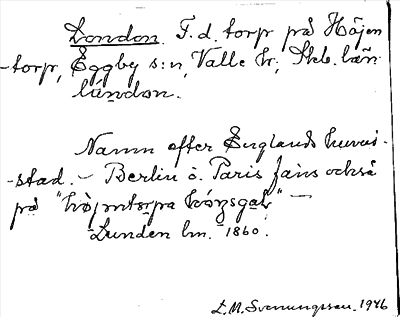 London. F.d. torp på Höjen
-torp, Eggby s:n, Valle hr, Skb. län
lúndon.
Namn efter Englands huvud-
-stad. – Berlin o. Paris fans också
på "hö̀jmtorpa" –
Lunden lm. 1860.
L.M. Svenungsson. 1946